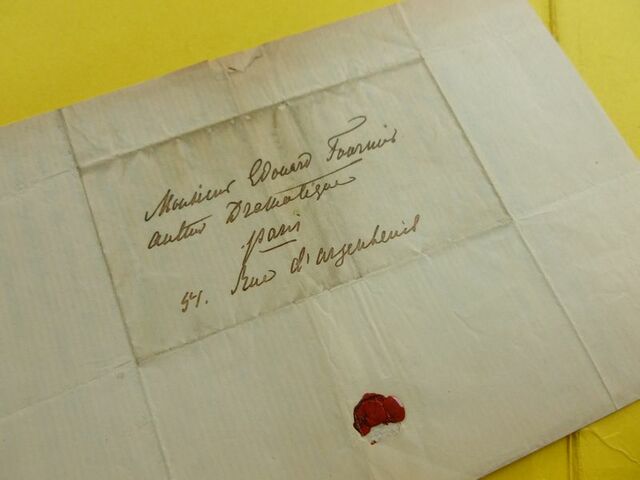 Monsieur Edouard Fournier
auteur Dramatique
paris
51. Rue d'argenteuil